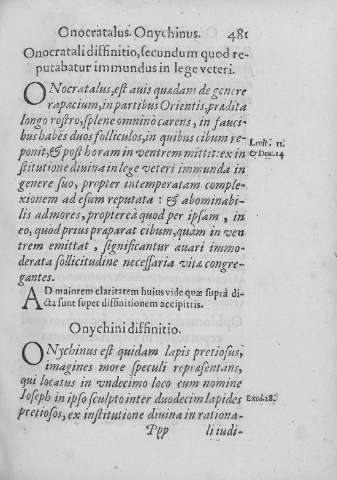 Onocratalus. Onychinus. 481
Onocratali diffinitio, secundum quod re-
putabatur immundus in lege veteri.
ONocratalus, est auis quædam de genere
rapacium, in partibus Orientis, prædita
longo rostro, splene omninò carens, in fauci-
bus habẽs duos folliculos, in quibus cibum re-
ponit, & post horam in ventrem mittit: ex in
stitutione diuina in lege veteri immunda in
genere suo, propter intemperatam comple-
xionem ad esum reputata: & abominabi-
lis ad mores, proptereà quod per ipsam, in
eo, quod prius præparat cibum, quam in ven
trem emittat, significantur auari immo-
derata sollicitudine necessaria vitæ congre-
gantes.
Leuit. 11.
& Deu. 14
AD maiorem claritatem huius vide quæ suprà di-
cta sunt super diffinitionem accipitris.
Onychini diffinitio.
ONychinus est quidam lapis pretiosus,
imagines more speculi repræsentans,
qui locatus in vndecimo loco cum nomine
Ioseph in ipso sculpto inter duodecim lapides
pretiosos, ex institutione diuina in rationa-
Exod. 28.
Ppp li iudi-